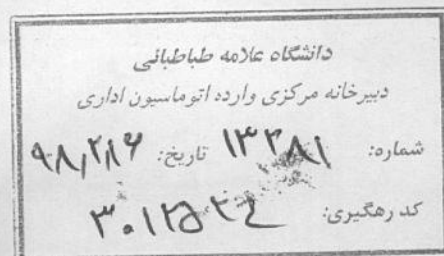 دانشگاه علامه طباطبائی
دبیرخانه مرکزی وارده اتوماسیون اداری
شماره: ۱۳۲۸۱ تاریخ: ۹۸/۲/۱۶
کد رهگیری: